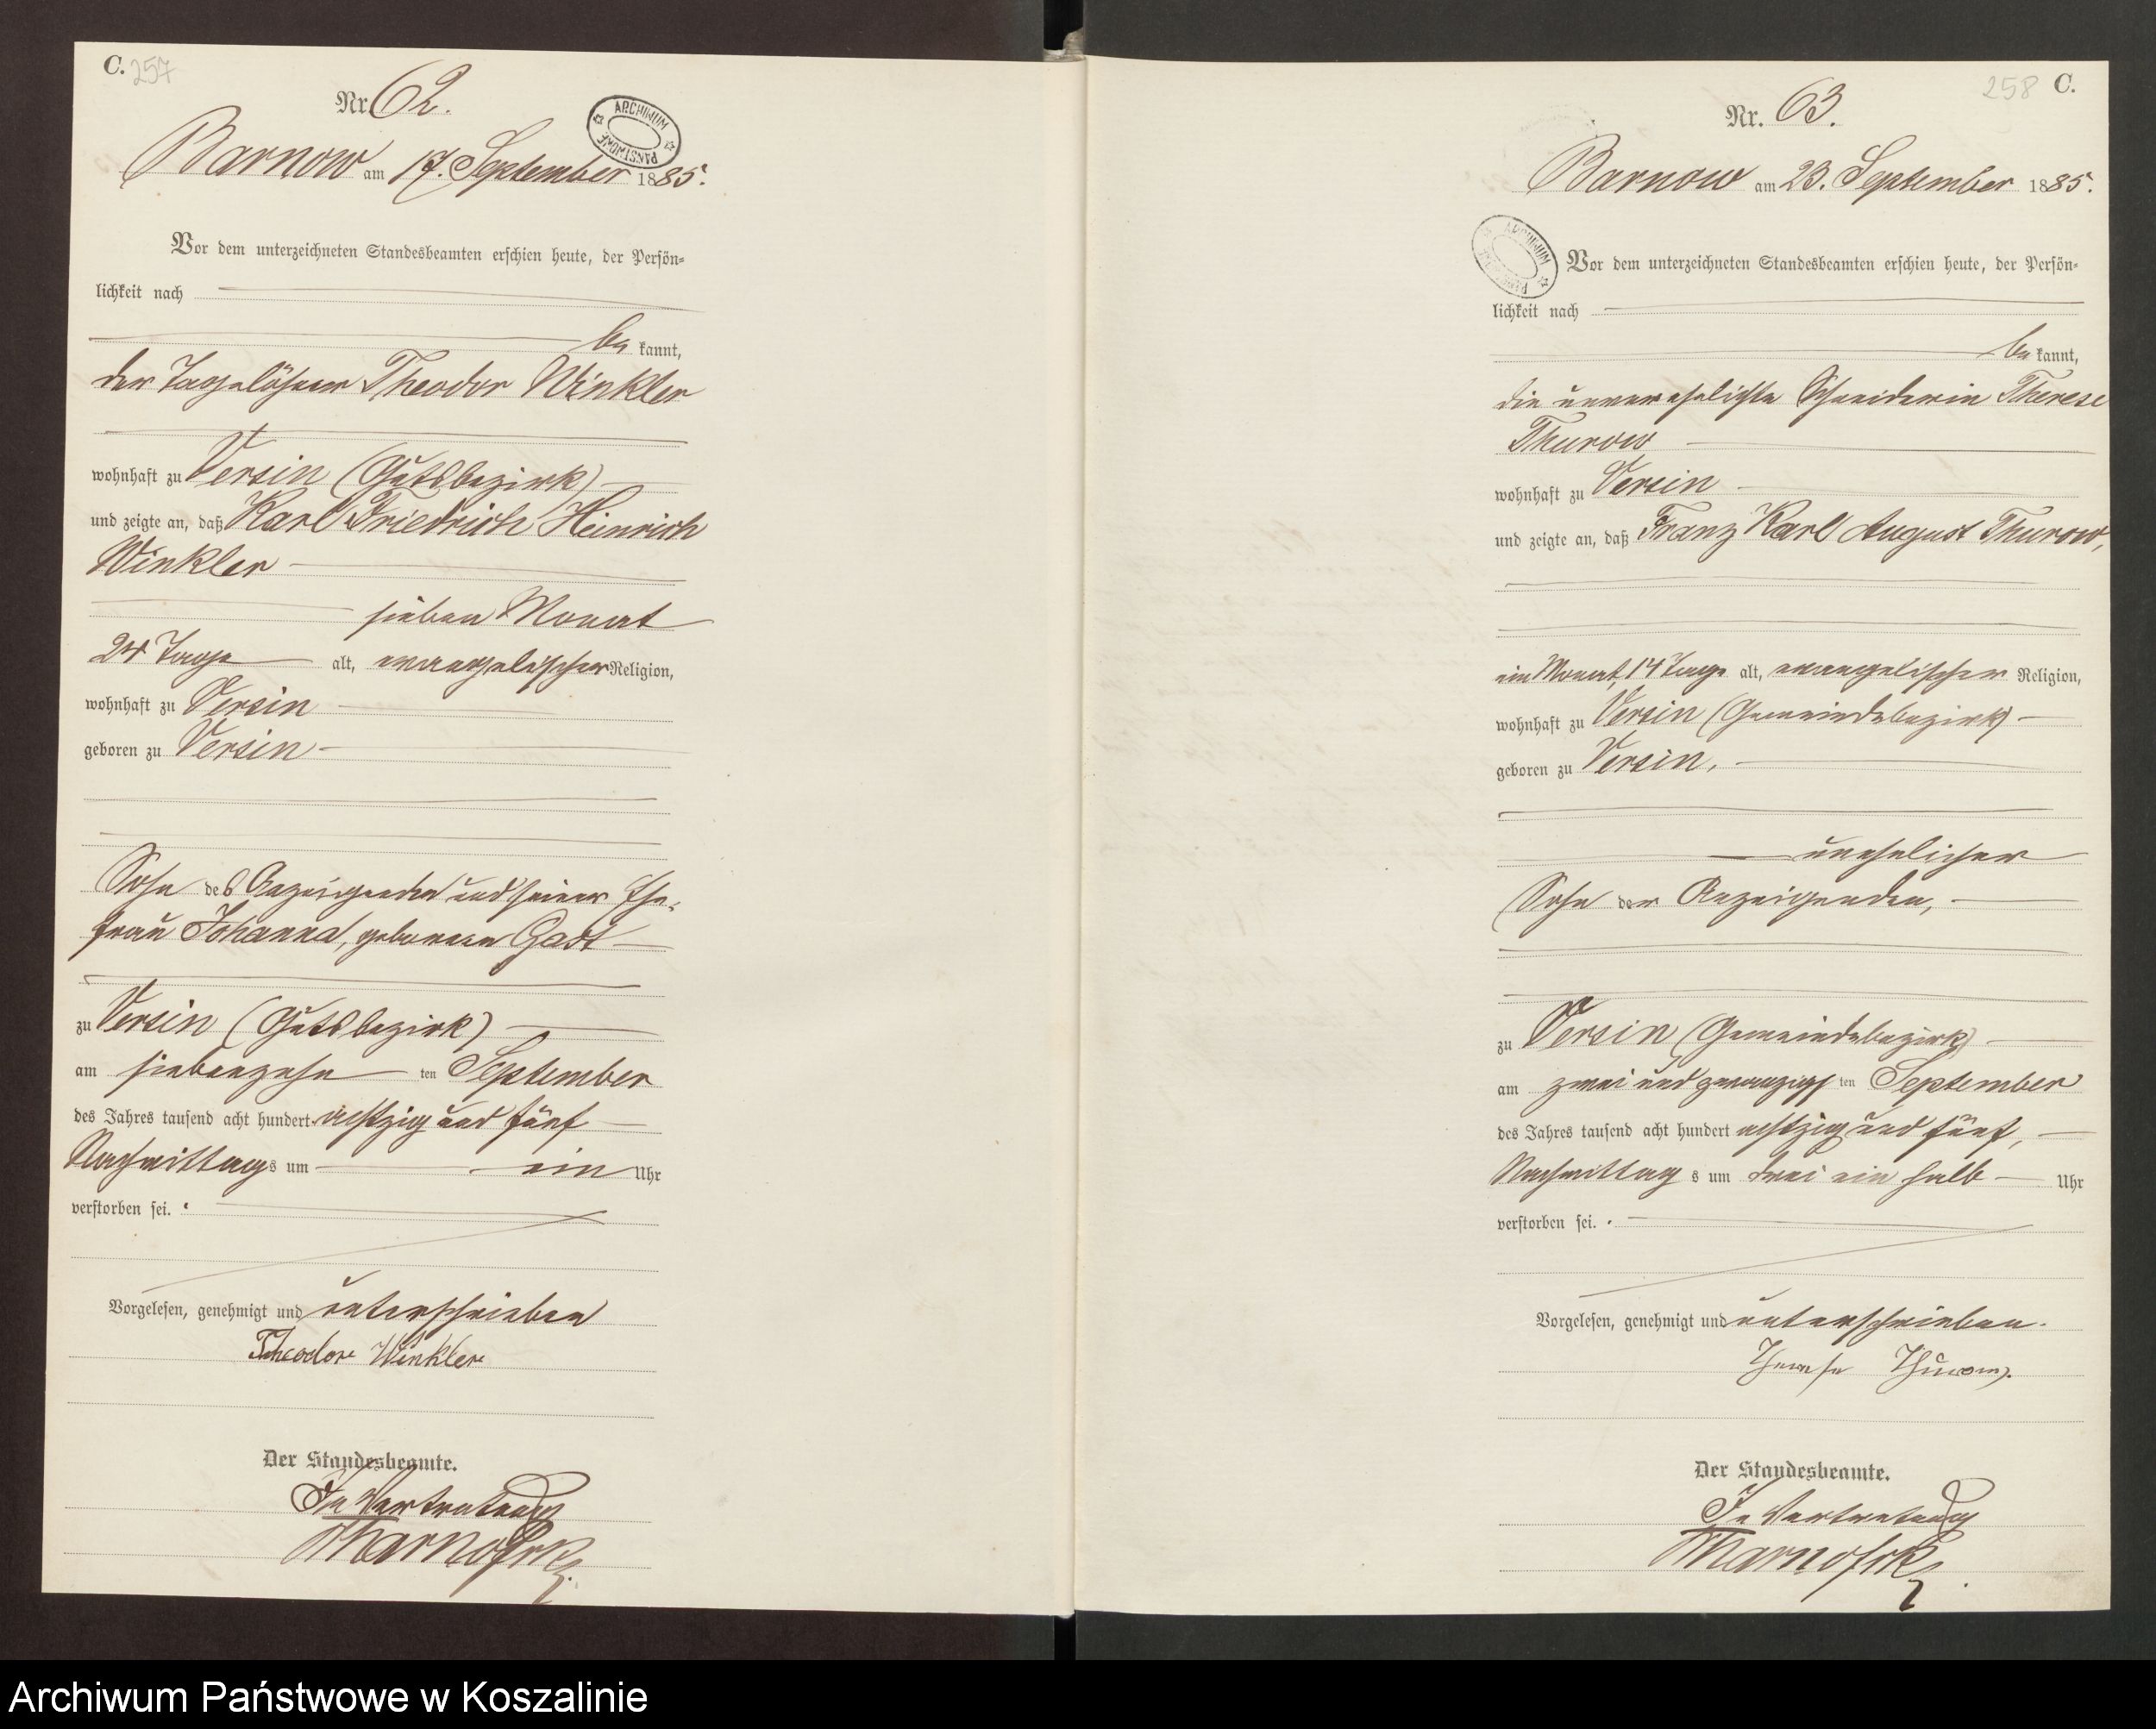 C. 257
Nr. 62.
ARCHIWUM PAŃSTWOWE
Barnow am 17. September 1885.
Vor dem unterzeichneten Standesbeamten erschien heute, der Persön-
lichkeit nach
be kannt,
der Tagelöhner Theodor Winkler
wohnhaft zu Versin (Gutsbezirk)
und zeigte an, daß Karl Friedrich Heinrich
Winkler
sieben Monat
24 Tage alt, evangelischer Religion,
wohnhaft zu Versin
geboren zu Versin
Sohn des Anzeigenden und seiner Ehe-
frau Johanna, geborenen Gast
zu Versin (Gutsbezirk)
am siebenzehn ten September
des Jahres tausend acht hundert achtzig und fünf
Nachmittags um ein Uhr
verstorben sei.
Vorgelesen, genehmigt und unterschrieben
Theodor Winkler
Der Standesbeamte.
In Vertretung
258 C.
Nr. 63.
Barnow am 23. September 1885.
ARCHIWUM PAŃSTWOWE
Vor dem unterzeichneten Standesbeamten erschien heute, der Persön-
lichkeit nach
be kannt,
die unverehelichte Schneiderin Therese
Thurow
wohnhaft zu Versin
und zeigte an, daß Franz Karl August Thurow,
ein Monat, 14 Tage alt, evangelischer Religion,
wohnhaft zu Versin (Gemeindebezirk)
geboren zu Versin,
unehelicher
Sohn der Anzeigenden,
zu Versin (Gemeindebezirk)
am zwei und zwanzigs ten September
des Jahres tausend acht hundert achtzig und fünf,
Nachmittag s um drei ein halb Uhr
verstorben sei.
Vorgelesen, genehmigt und unterschrieben.
Therese Thurow.
Der Standesbeamte.
In Vertretung
Archiwum Państwowe w Koszalinie